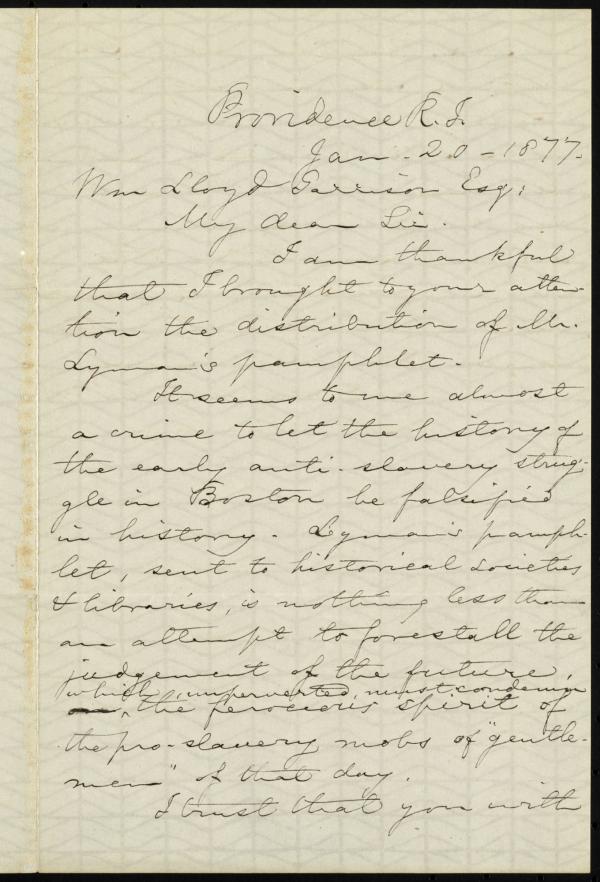 Providence R.I.
Jan - 20 - 1877.
Wm Lloyd Garrison Esq:
My dear Sir.
I am thankful
that I brought to your atten-
tion the distribution of Mr.
Lyman's pamphlet.
It seems to me almost
a crime to let the history of
the early anti-slavery strug-
gle in Boston be falsified
in history. Lyman's pamph-
let, sent to historical societies
& libraries, is nothing less than
an attempt to forestall the
judgement of the future,
which, unperverted, must condemn
the ferocious spirit of
the pro-slavery mobs of "gentle-
men" of that day.
I trust that you with